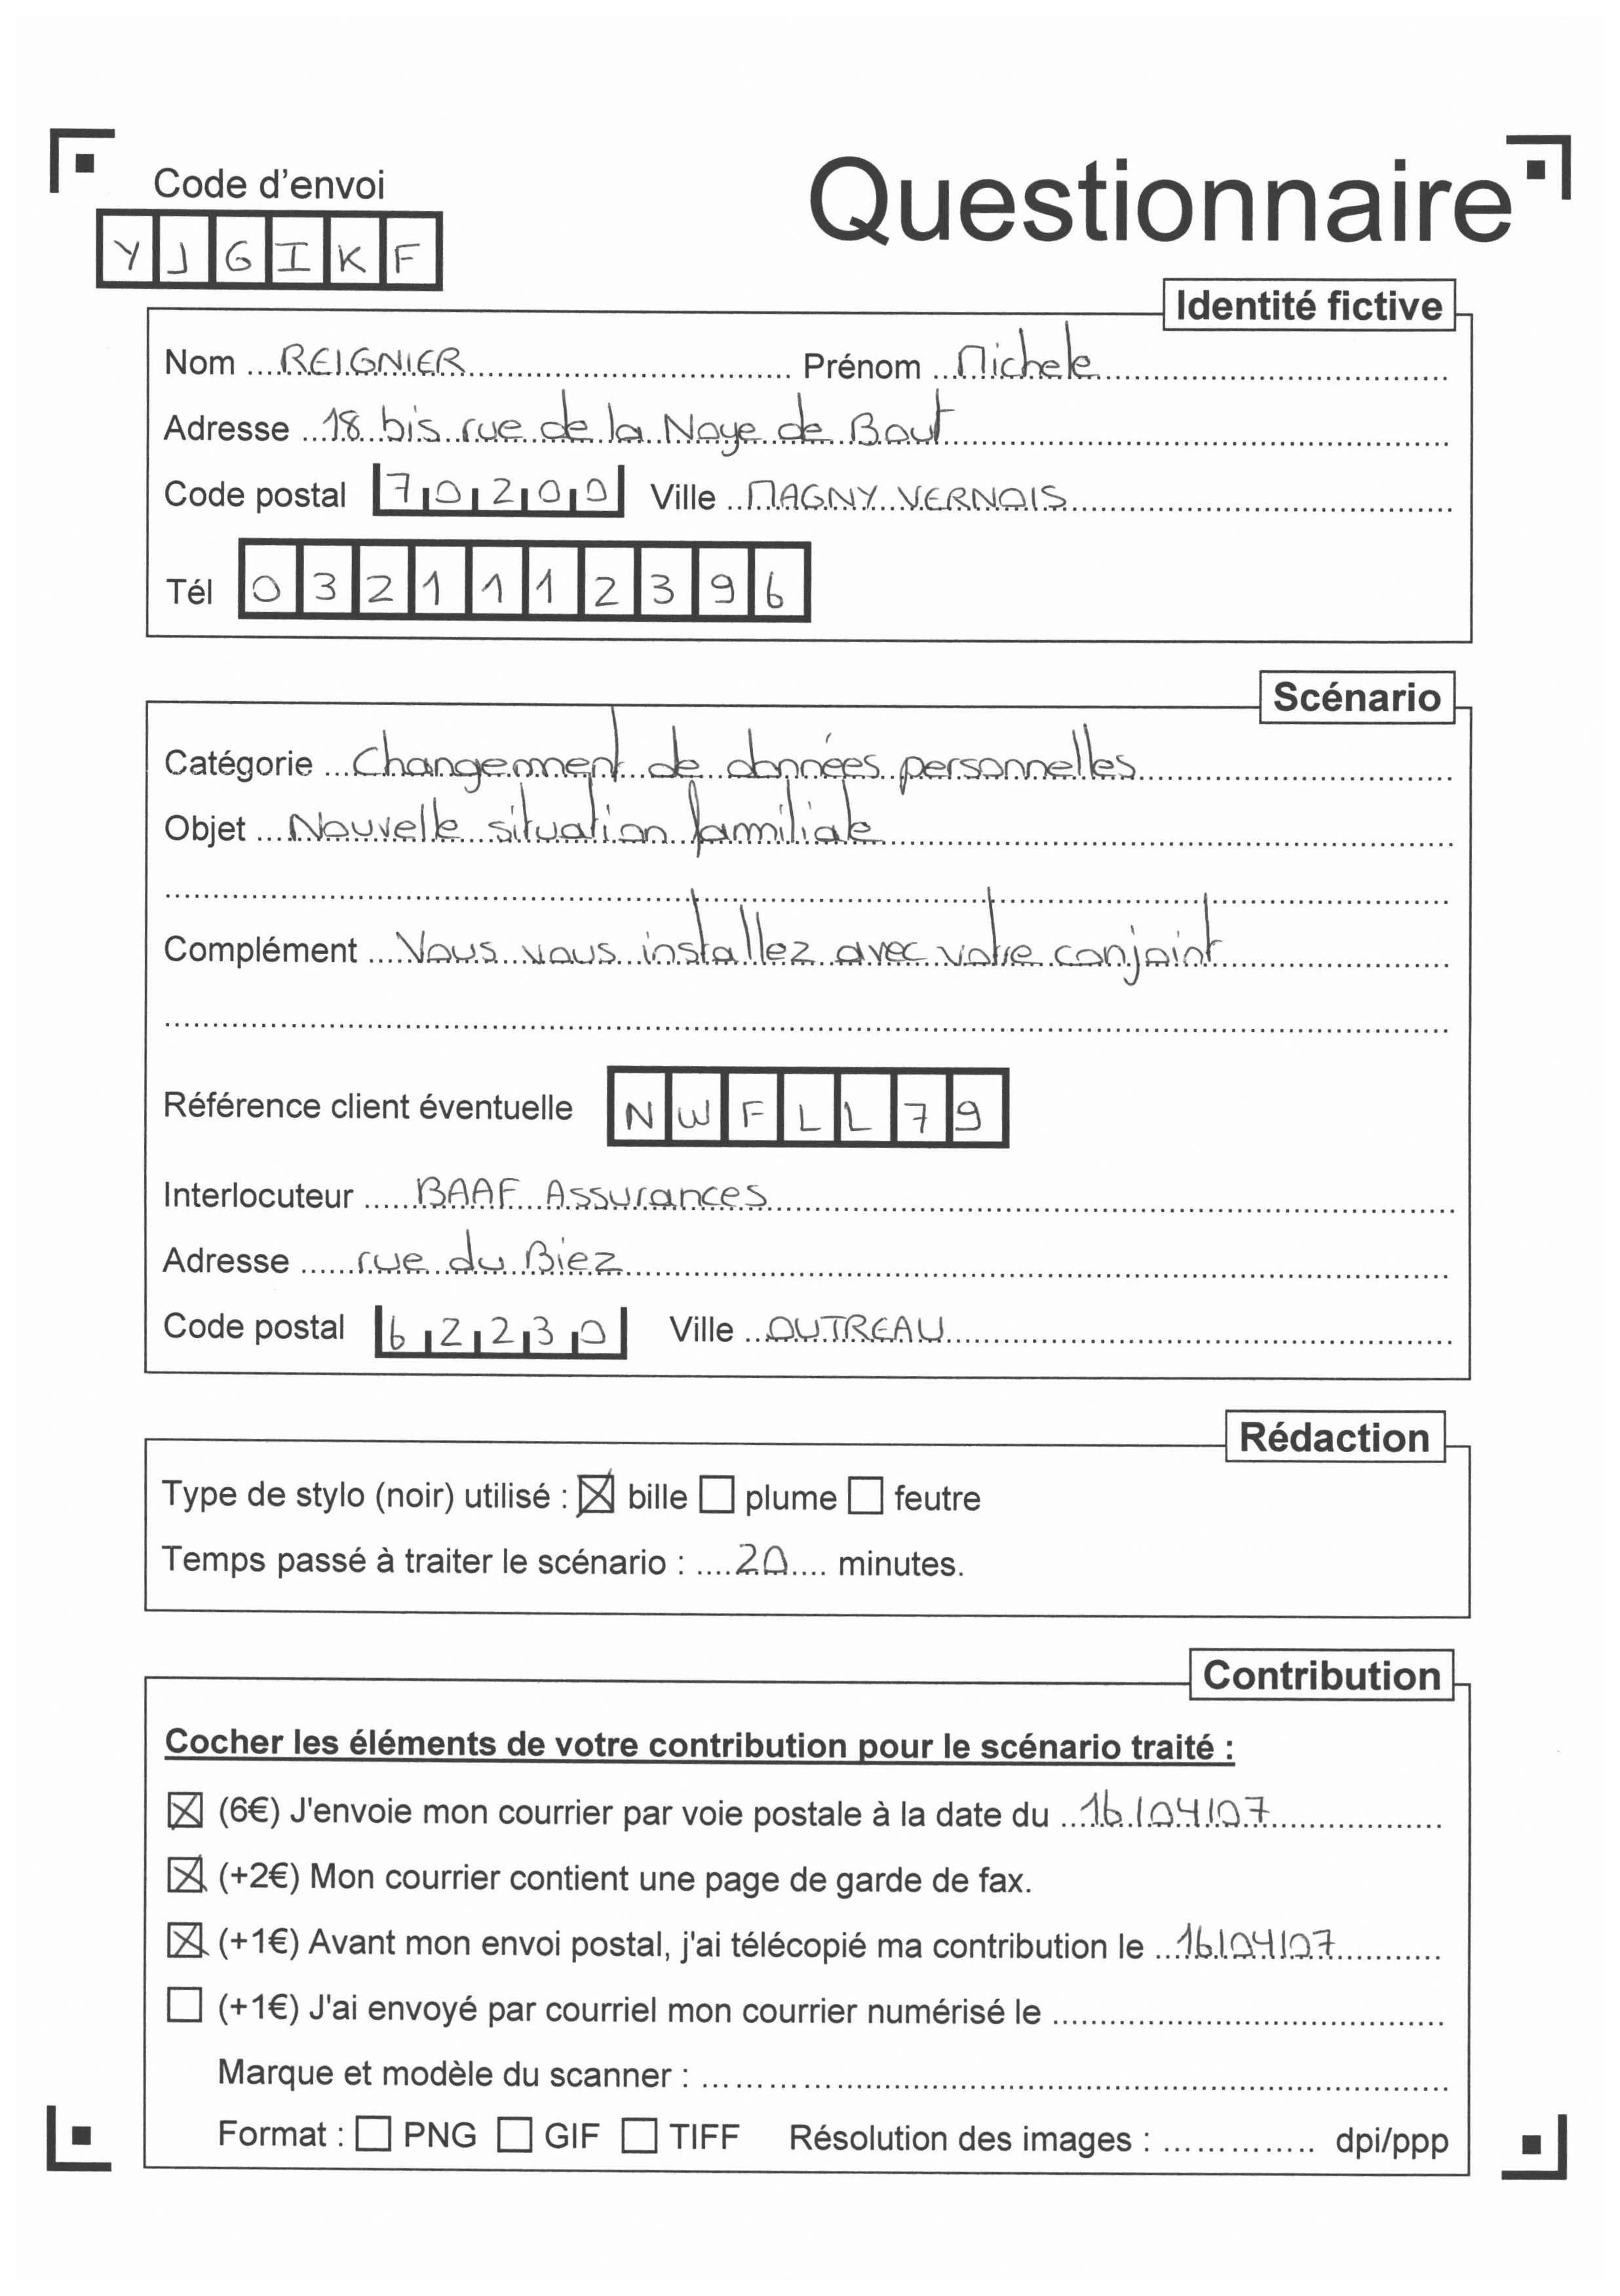 Code d'envoi
Questionnaire
Y J G I K F
Identité fictive
Nom REIGNIER Prénom Michele
Adresse 18 bis rue de la Noye de Bout
Code postal 70200 Ville MAGNY VERNOIS
Tél 0321112396
Scénario
Catégorie Changement de données personnelles
Objet Nouvelle situation familiale
Complément Vous vous installez avec votre conjoint
Référence client éventuelle NWFLL79
Interlocuteur BAAF Assurances
Adresse rue du Biez
Code postal 62230 Ville OUTREAU
Rédaction
Type de stylo (noir) utilisé : ☒ bille ☐ plume ☐ feutre
Temps passé à traiter le scénario : 20 minutes.
Contribution
Cocher les éléments de votre contribution pour le scénario traité :
☒ (6€) J'envoie mon courrier par voie postale à la date du 16/04/07
☒ (+2€) Mon courrier contient une page de garde de fax.
☒ (+1€) Avant mon envoi postal, j'ai télécopié ma contribution le 16/04/07
☐ (+1€) J'ai envoyé par courriel mon courrier numérisé le
Marque et modèle du scanner :
Format : ☐ PNG ☐ GIF ☐ TIFF Résolution des images : dpi/ppp